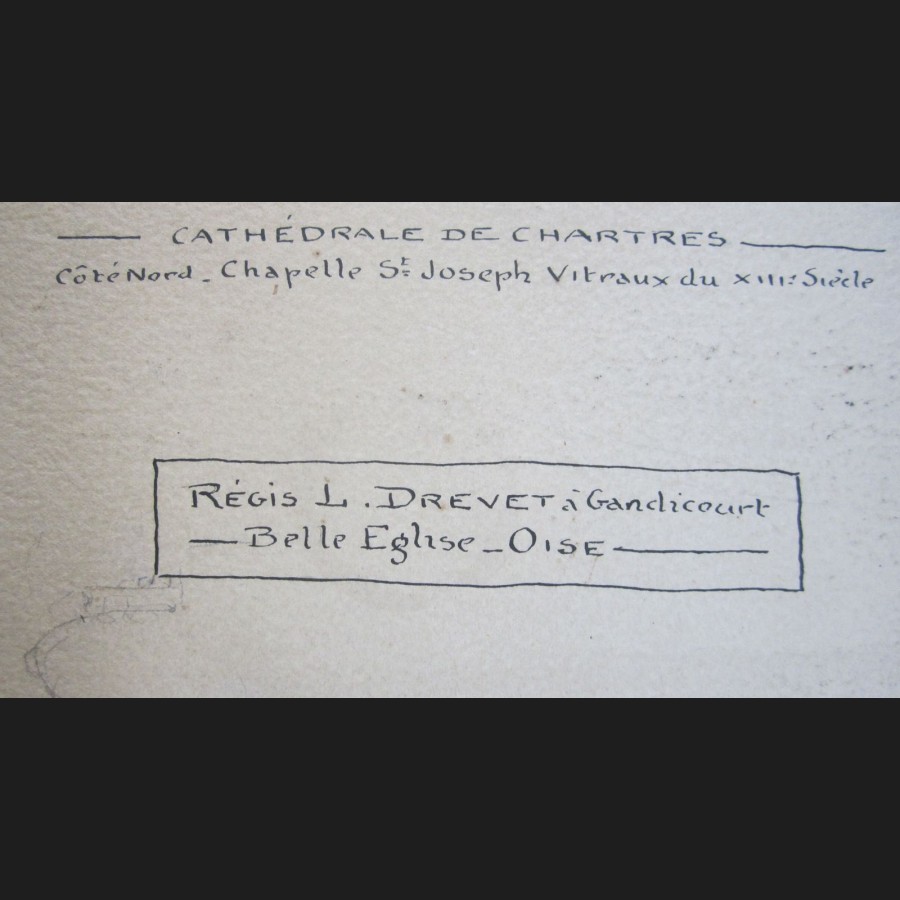 — CATHÉDRALE DE CHARTRES —
Côté Nord - Chapelle St Joseph Vitraux du XIIIe Siècle
RÉGIS L. DREVET à Gandicourt
— Belle Eglise - OISE —